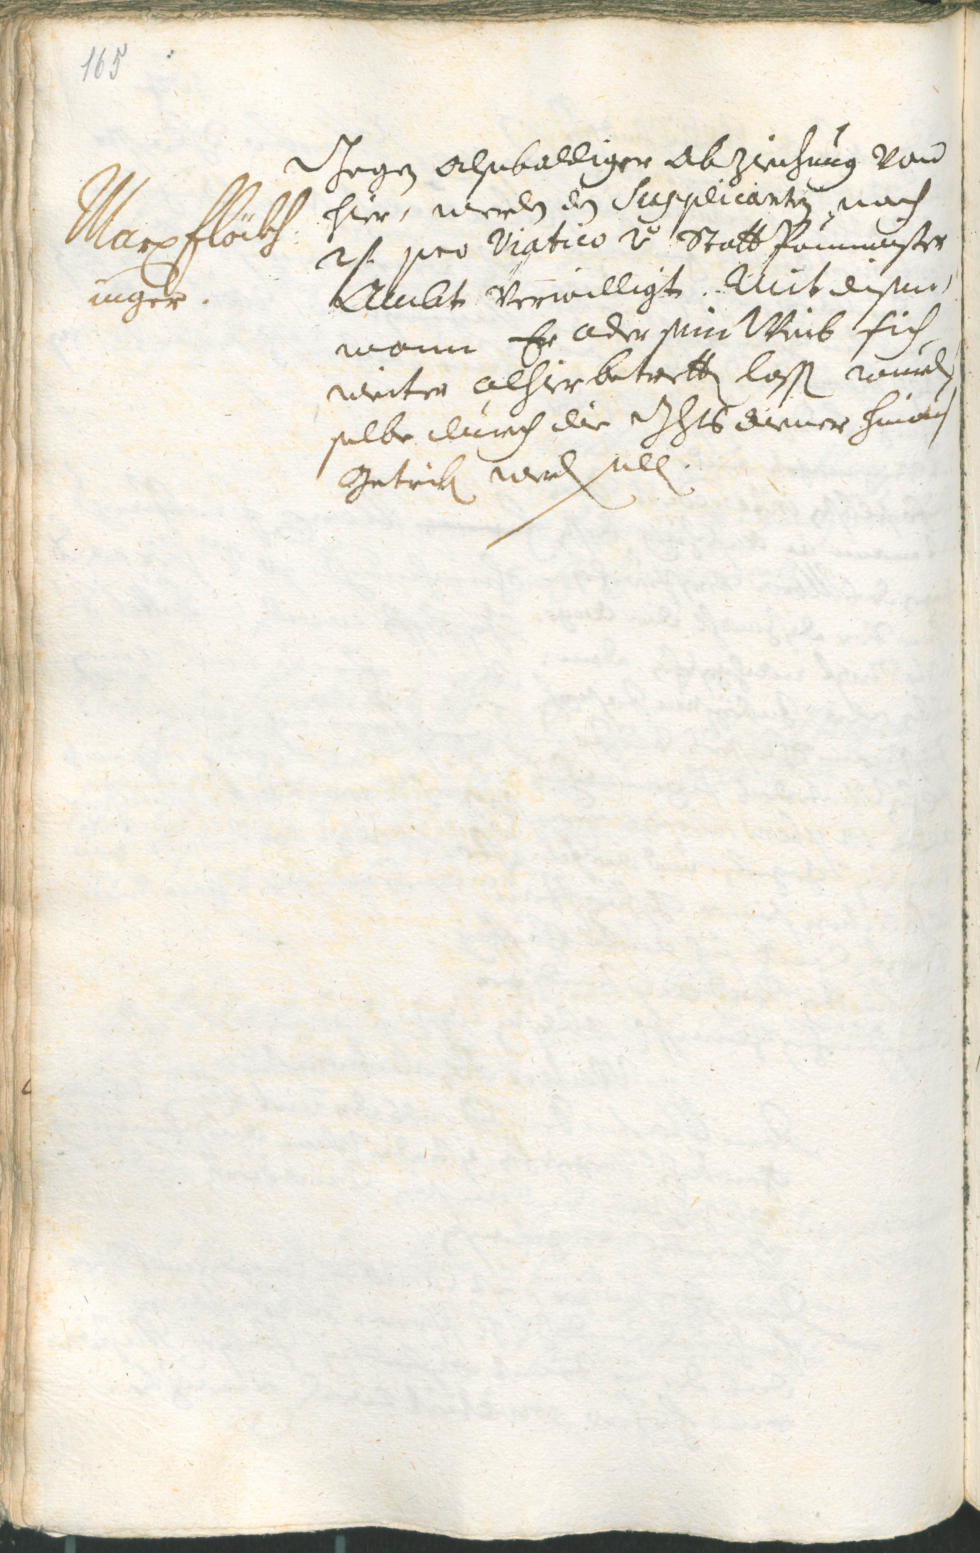 165
Marx flöckh
inger.
Gegen alsobaldiger Abziehung von
hier, werden den Supplicanten, noch
2 f. pro Viatico v. Statt Paumaister
Ambt verwilligt. Mit disem,
wann Er oder sein Weib sich
weiter alhier betretten lassen wurde,
selbe durch die Ghts diener hinauß
Getriben werden solle.